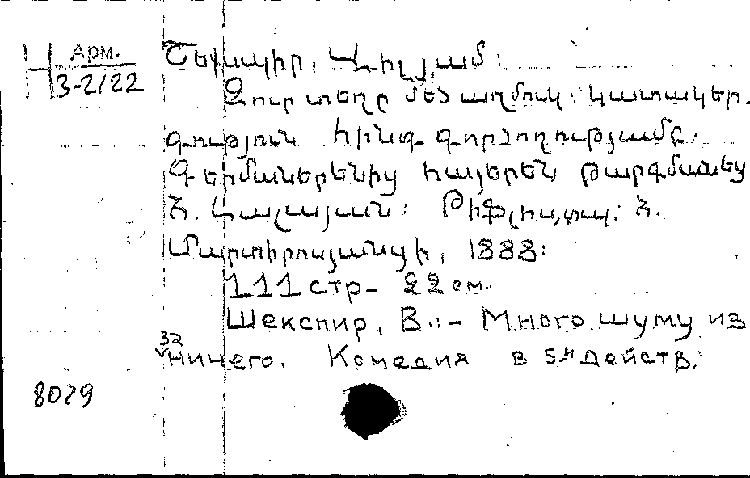 Н Арм.
3-2/22
Շեքսպիր, Վիլյամ:
Զուր տեղը մեծ աղմուկ: Կատակեր-
գություն հինգ գործողությամբ:
Գերմաներենից հայերեն թարգմանեց
Հ. Կաչայան: Թիֆլիս, տպ. Հ.
Մարտիրոսյանցի, 1888:
111 стр- 22 см.
Шекспир, В.:- Много шуму из
32
ничего. Комедия в 5и действ.
8029